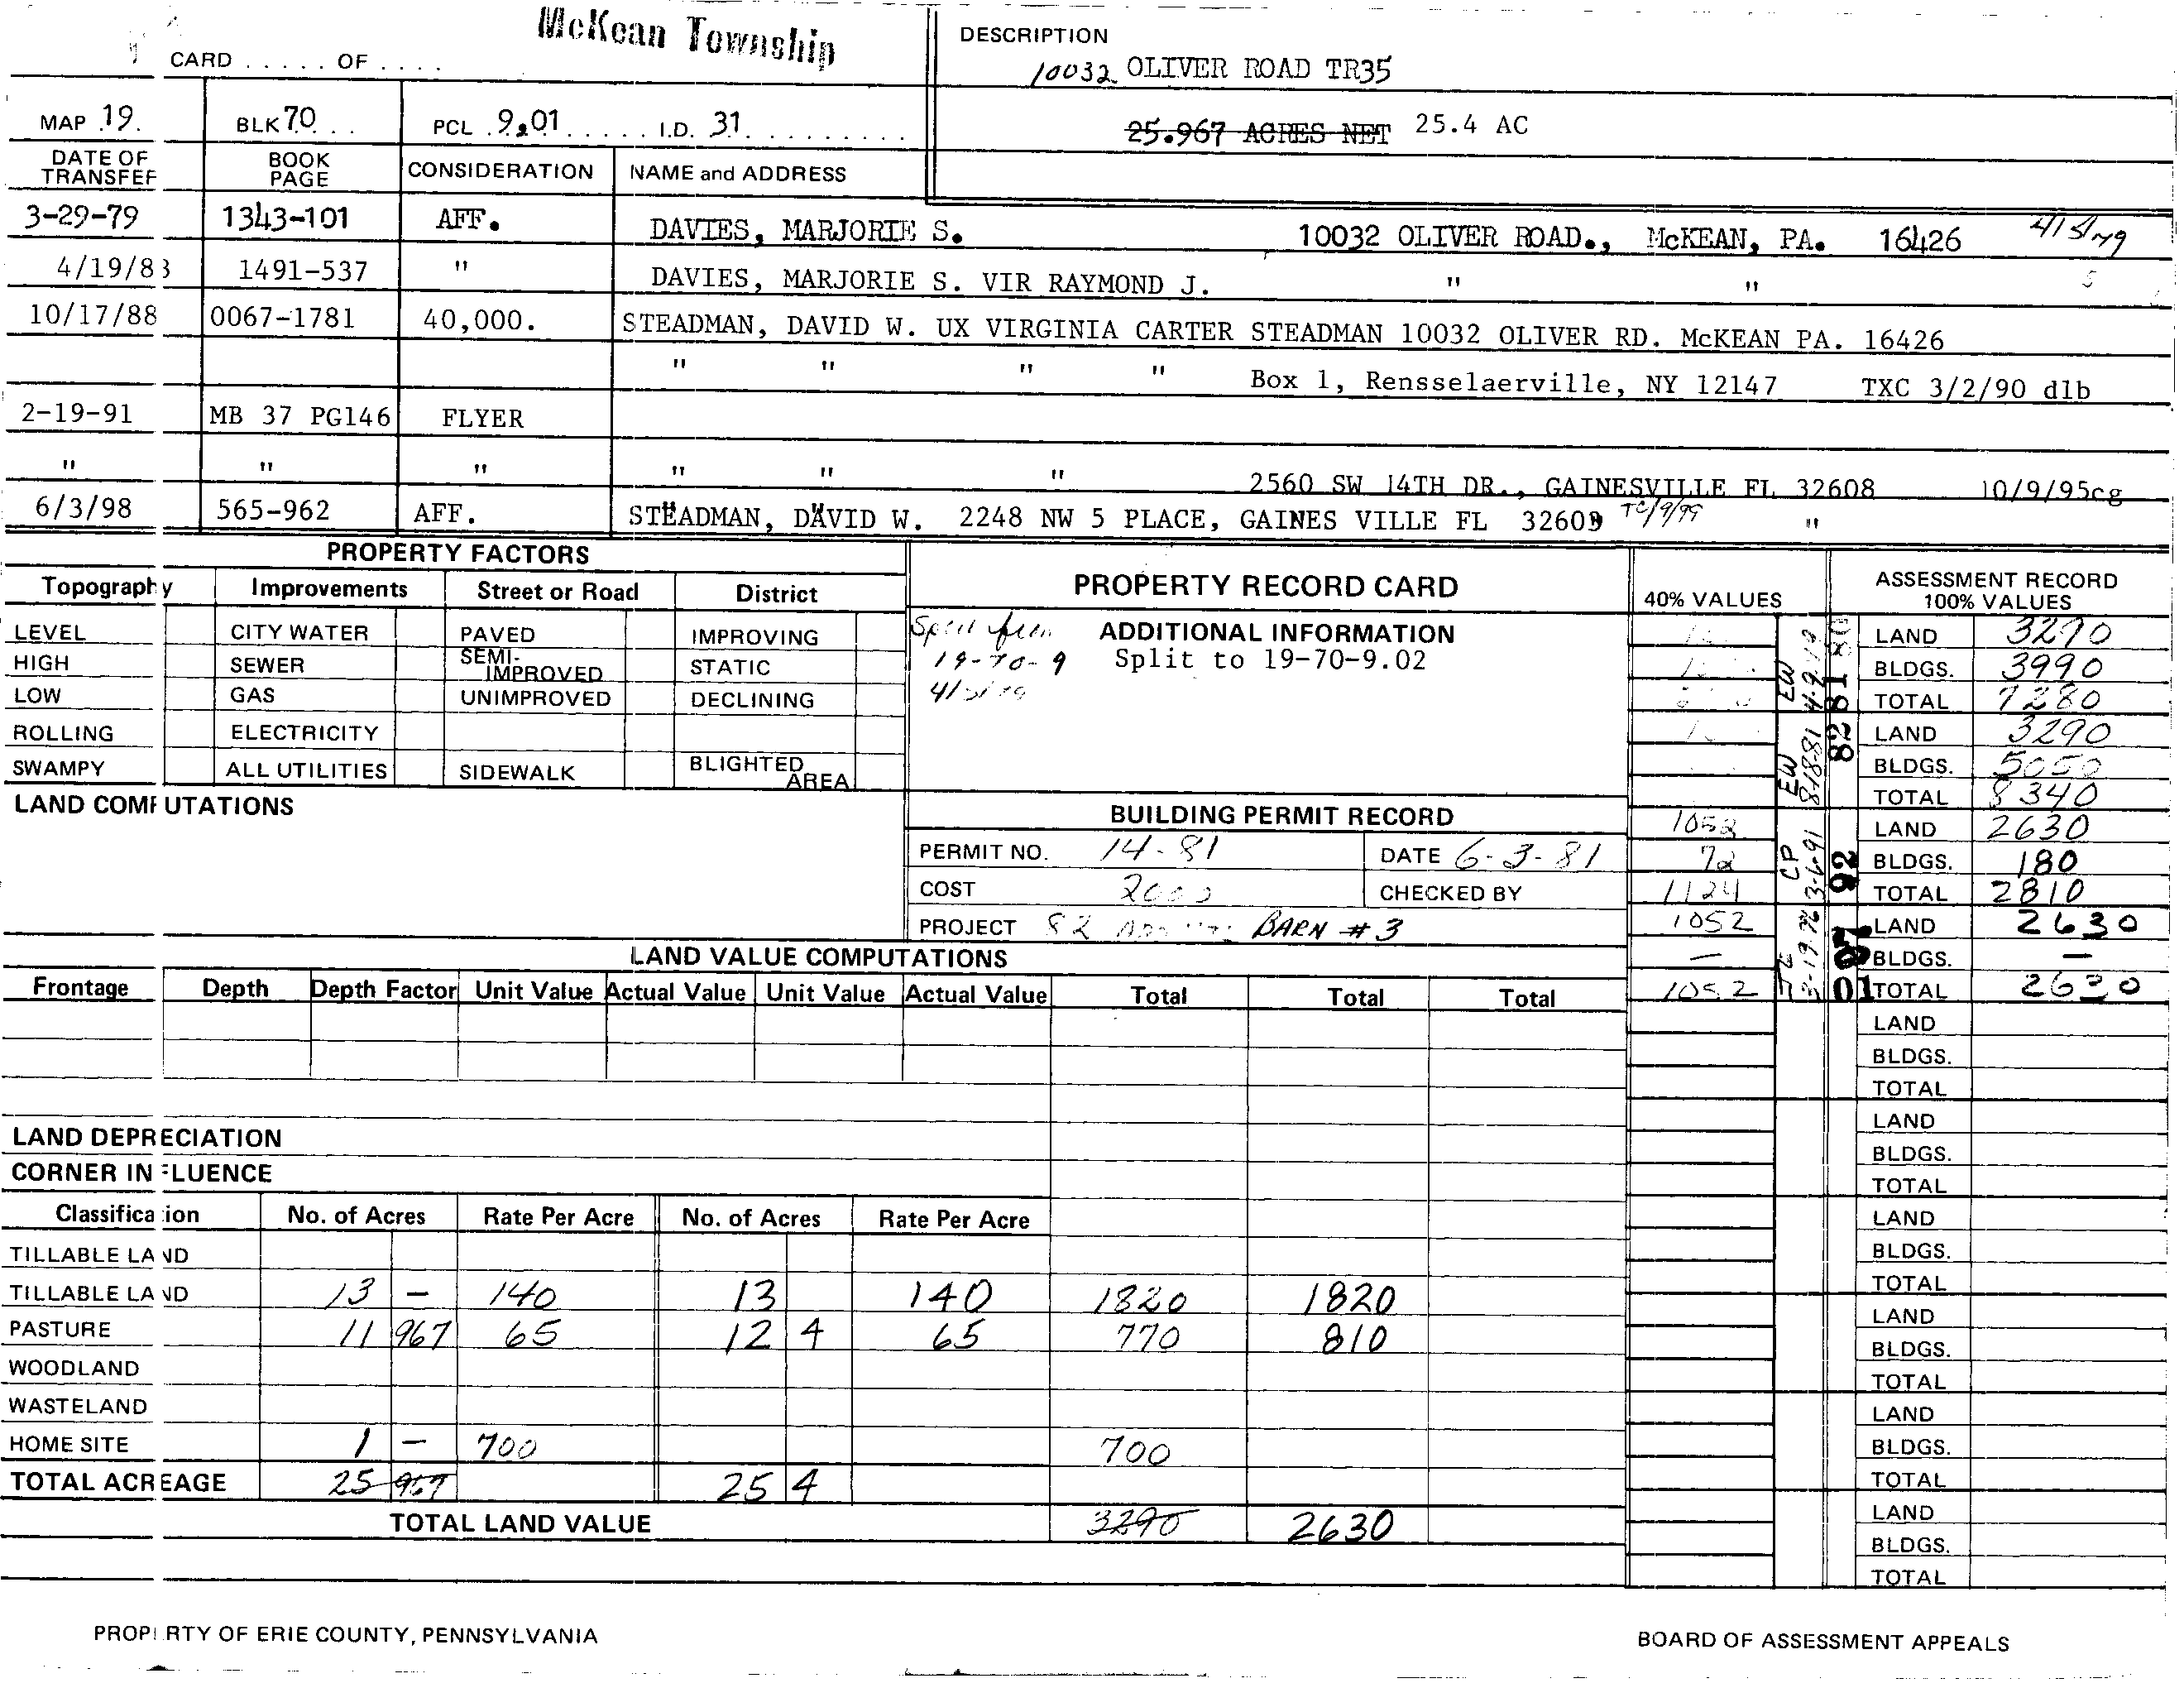 McKean Township
CARD ..... OF ....
DESCRIPTION
10032 OLIVER ROAD TR35
MAP .19. BLK 70... PCL .9.01...... I.D. 31..........
25.967 ACRES NET 25.4 AC
DATE OF TRANSFER BOOK PAGE CONSIDERATION NAME and ADDRESS
3-29-79 1343-101 AFF. DAVIES, MARJORIE S. 10032 OLIVER ROAD., McKEAN, PA. 16426
4/19/83 1491-537 " DAVIES, MARJORIE S. VIR RAYMOND J. " "
10/17/88 0067-1781 40,000. STEADMAN, DAVID W. UX VIRGINIA CARTER STEADMAN 10032 OLIVER RD. McKEAN PA. 16426
" " " " Box 1, Rensselaerville, NY 12147 TXC 3/2/90 dlb
2-19-91 MB 37 PG146 FLYER
" " " " " " 2560 SW 14TH DR., GAINESVILLE FL 32608 10/9/95cg
6/3/98 565-962 AFF. STEADMAN, DAVID W. 2248 NW 5 PLACE, GAINES VILLE FL 32603 "
PROPERTY FACTORS
Topography Improvements Street or Road District
LEVEL CITY WATER PAVED IMPROVING
HIGH SEWER SEMI-IMPROVED STATIC
LOW GAS UNIMPROVED DECLINING
ROLLING ELECTRICITY
SWAMPY ALL UTILITIES SIDEWALK BLIGHTED AREA
LAND COMPUTATIONS
PROPERTY RECORD CARD
ADDITIONAL INFORMATION
19-70-9 Split to 19-70-9.02
BUILDING PERMIT RECORD
PERMIT NO. 14-81 DATE 6-3-81
COST 2000 CHECKED BY
PROJECT 82 BARN #3
40% VALUES
1052
72
1124
1052
—
1052
EW 4-9-79
EW 8-18-81
CP 3-6-91
81
82
92
01
ASSESSMENT RECORD
100% VALUES
LAND 3290
BLDGS. 3990
TOTAL 7280
LAND 3290
BLDGS. 5050
TOTAL 8340
LAND 2630
BLDGS. 180
TOTAL 2810
LAND 2630
BLDGS. —
TOTAL 2630
LAND
BLDGS.
TOTAL
LAND
BLDGS.
TOTAL
LAND
BLDGS.
TOTAL
LAND
BLDGS.
TOTAL
LAND
BLDGS.
TOTAL
LAND
BLDGS.
TOTAL
LAND VALUE COMPUTATIONS
Frontage Depth Depth Factor Unit Value Actual Value Unit Value Actual Value Total Total Total
LAND DEPRECIATION
CORNER INFLUENCE
Classification No. of Acres Rate Per Acre No. of Acres Rate Per Acre
TILLABLE LAND
TILLABLE LAND 13 — 140 13 140 1820 1820
PASTURE 11 967 65 12 4 65 770 810
WOODLAND
WASTELAND
HOME SITE 1 — 700 700
TOTAL ACREAGE 25 967 25 4
TOTAL LAND VALUE 3290 2630
PROPERTY OF ERIE COUNTY, PENNSYLVANIA
BOARD OF ASSESSMENT APPEALS